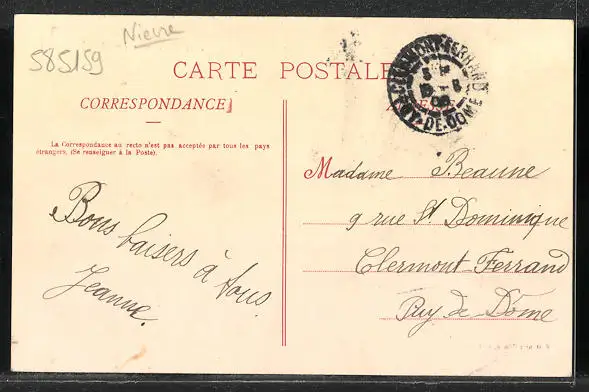 Nievre
585159
CARTE POSTALE
CORRESPONDANCE
La Correspondance au recto n'est pas acceptée par tous les pays
étrangers. (Se renseigner à la Poste).
Bons baisers à tous.
Jeanne.
CLERMONT-FERRAND
PUY-DE-DOME
Madame Beaune
9 rue St Dominique
Clermont-Ferrand
Puy de Dôme